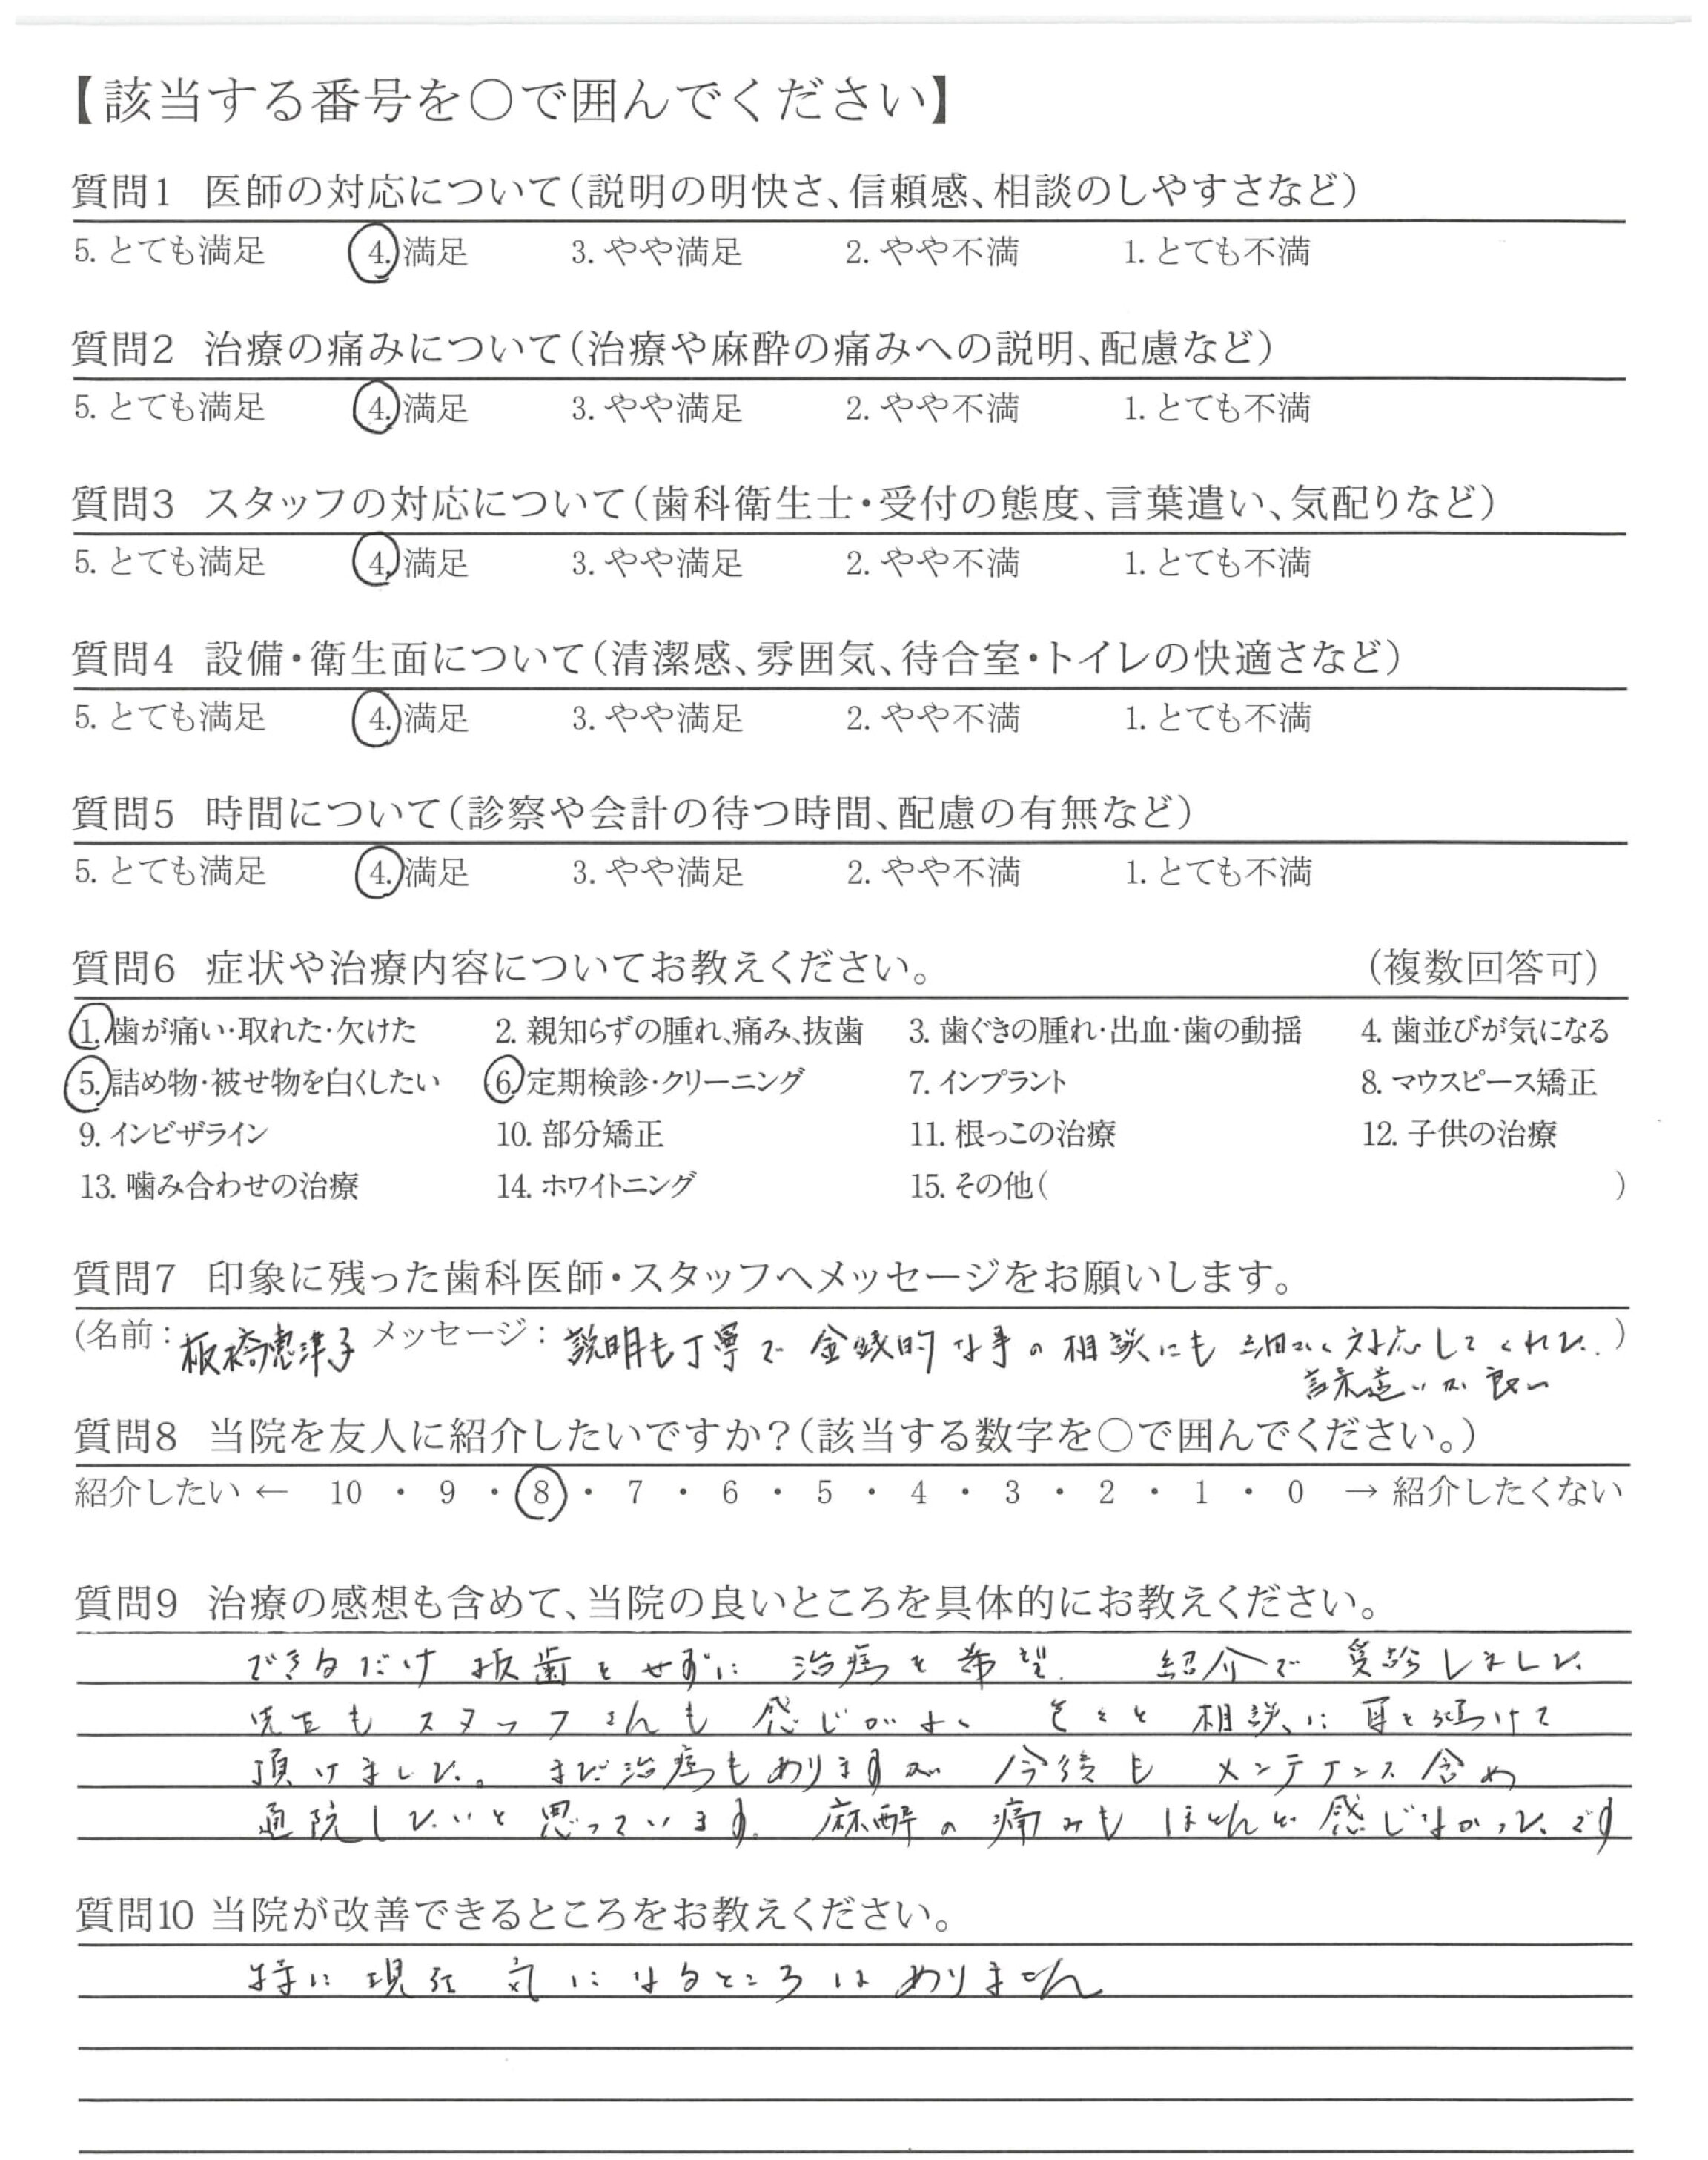 【該当する番号を○で囲んでください】
質問1 医師の対応について(説明の明快さ、信頼感、相談のしやすさなど)
5. とても満足 4. 満足 3. やや満足 2. やや不満 1. とても不満
質問2 治療の痛みについて(治療や麻酔の痛みへの説明、配慮など)
5. とても満足 4. 満足 3. やや満足 2. やや不満 1. とても不満
質問3 スタッフの対応について(歯科衛生士・受付の態度、言葉遣い、気配りなど)
5. とても満足 4. 満足 3. やや満足 2. やや不満 1. とても不満
質問4 設備・衛生面について(清潔感、雰囲気、待合室・トイレの快適さなど)
5. とても満足 4. 満足 3. やや満足 2. やや不満 1. とても不満
質問5 時間について(診察や会計の待つ時間、配慮の有無など)
5. とても満足 4. 満足 3. やや満足 2. やや不満 1. とても不満
質問6 症状や治療内容についてお教えください。 (複数回答可)
1. 歯が痛い・取れた・欠けた 2. 親知らずの腫れ、痛み、抜歯 3. 歯ぐきの腫れ・出血・歯の動揺 4. 歯並びが気になる
5. 詰め物・被せ物を白くしたい 6. 定期検診・クリーニング 7. インプラント 8. マウスピース矯正
9. インビザライン 10. 部分矯正 11. 根っこの治療 12. 子供の治療
13. 噛み合わせの治療 14. ホワイトニング 15. その他( )
質問7 印象に残った歯科医師・スタッフへメッセージをお願いします。
(名前：板橋恵津子 メッセージ：説明も丁寧で 金銭的な事の相談にも 細かく対応してくれた.)
言葉遣いが良い
質問8 当院を友人に紹介したいですか？(該当する数字を○で囲んでください。)
紹介したい ← 10 ・ 9 ・ 8 ・ 7 ・ 6 ・ 5 ・ 4 ・ 3 ・ 2 ・ 1 ・ 0 → 紹介したくない
質問9 治療の感想も含めて、当院の良いところを具体的にお教えください。
できるだけ 抜歯をせずに 治療を希望. 紹介で 受診しました.
先生も スタッフさんも 感じがよく 相談に 耳を傾けて
頂けました。 まだ治療もありますが 今後も メンテナンス含め
通院したいと思っています. 麻酔の痛みも ほとんど感じなかったです
質問10 当院が改善できるところをお教えください。
特に現在 気になるところは ありません